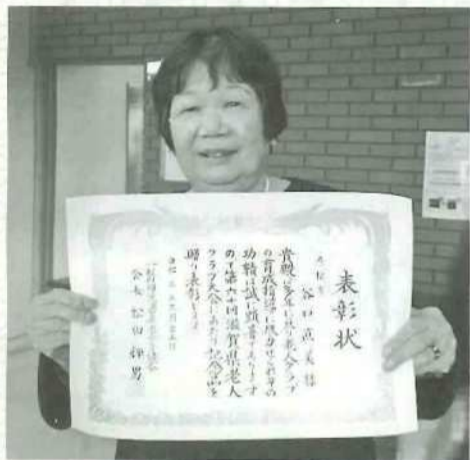 表彰状
谷口 様
貴殿は多年に亘り老人クラブ
の育成指導に尽力せられその
功績は誠に顕著であります
ので第六十回滋賀県老人
クラブ大会にあたり記念品を
贈り表彰します
令和 年 月 日
会長 松田 男